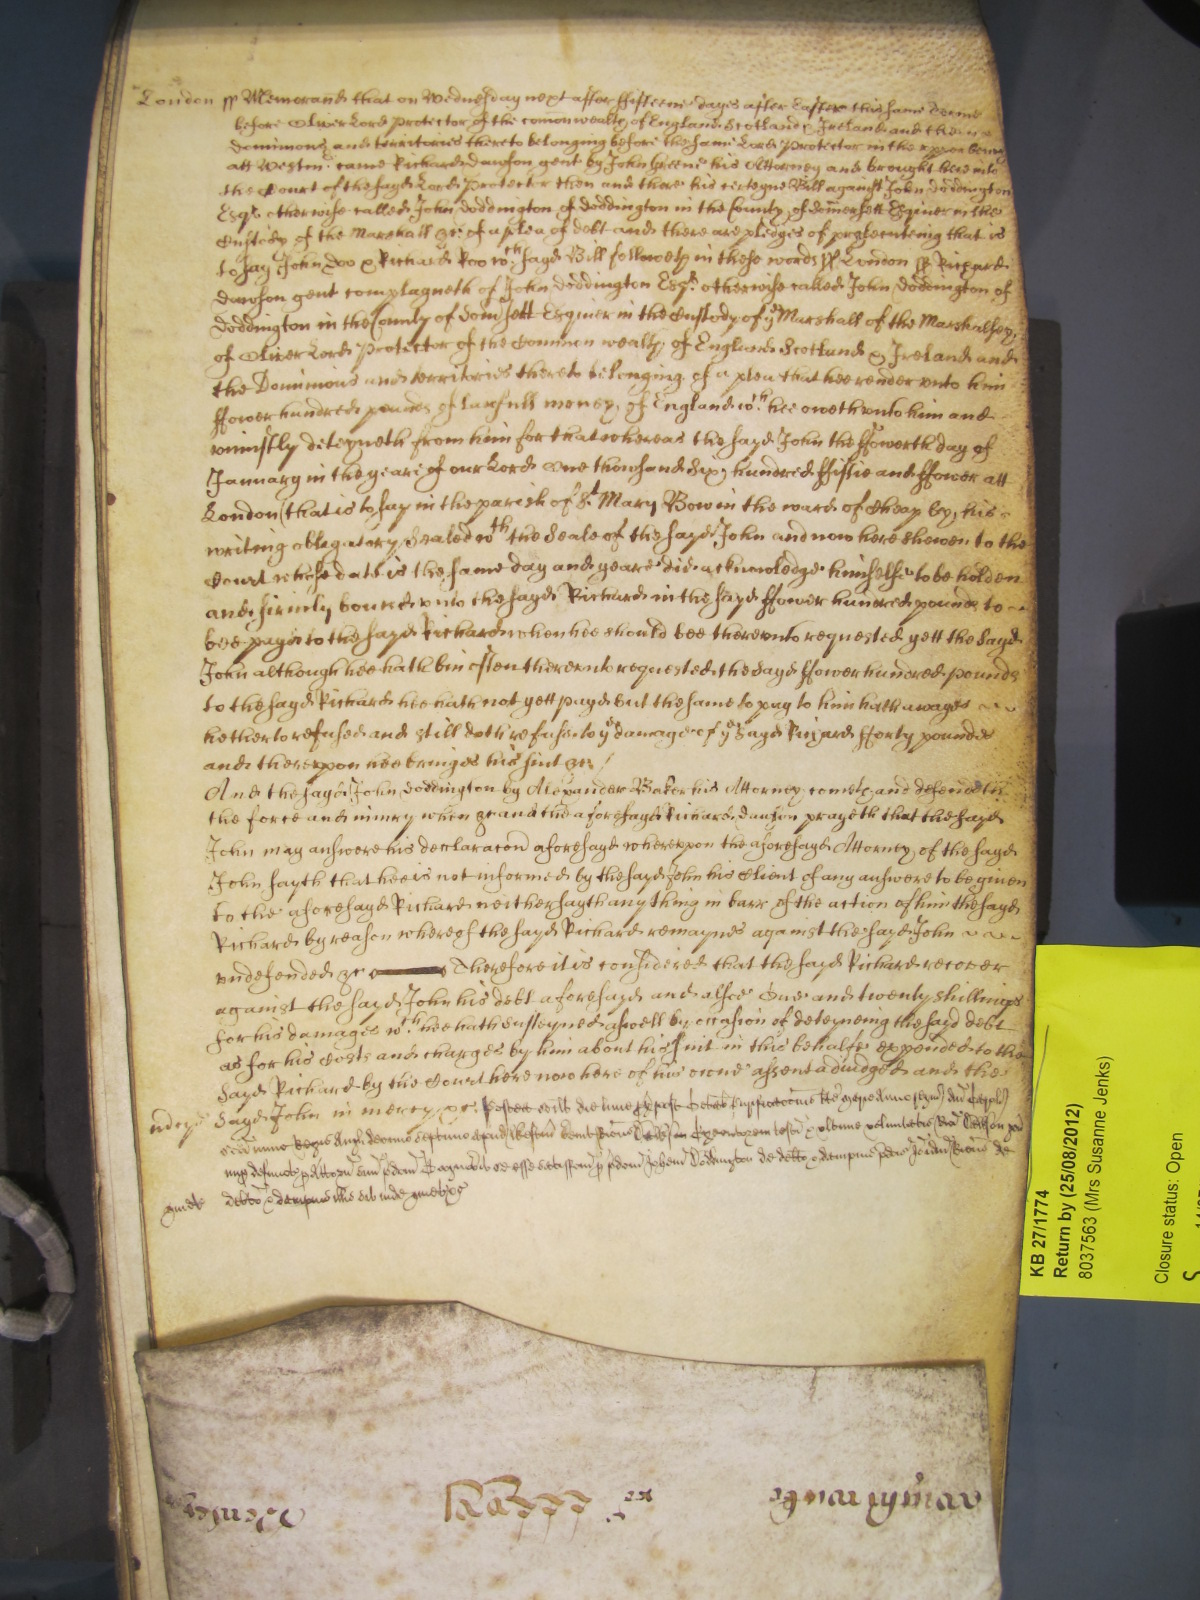 London ss Memorand that on Wednesday next after fifteene dayes after Easter this same terme
before Oliver Lord Protector of the comonwealth of England Scotland & Ireland and the
dominions and territories thereto belonging before the same Lord Protector in the upper bench
att Westmr came Richard Dawson gent by John Greene his Attorney and brought here into
the Court of the sayd Lord Protector then and there his certeyne Bill against John Doddington
Esqr otherwise called John Doddington of Doddington in the County of Somersett Esquier in the
Custody of the Marshall &c of a plea of debt and there are pledges of prosecuteing that is
to say John Doo & Richard Roo wch sayd Bill followeth in these words ss London ss Richard
Dawson gent complayneth of John Doddington Esqr otherwise called John Doddington of
Doddington in the County of Somsett Esquier in the Custody of ye Marshall of the Marshalsey
of Oliver Lord Protector of the Common wealth of England Scotland & Ireland and
the Dominions and territories thereto belonging of a plea that hee render unto him
ffower hundred pounds of lawfull money of England wch hee oweth unto him and
uniustly deteyneth from him for that whereas the sayd John the ffowerth day of
January in the yeare of our Lord One thowsand Six hundred ffiftie and ffower att
London (that is to say in the parish of St Mary Bow in the ward of Cheap by his
writing obligatory Sealed wth the Seale of the sayd John and now here shewen to the
Court whose date is the same day and yeare did acknowledge himselfe to be holden
and firmly bound unto the sayd Richard in the sayd ffower hundred pounds to
bee payd to the sayd Richard when hee should bee thereunto requested yett the Sayd
John although hee hath bin often thereunto requested the Sayd ffower hundred pounds
to the sayd Richard hee hath not yett payd but the same to pay to him hath alwayes
hetherto refused and still doth refuse to ye damage of ye Sayd Richard fforty pounds
and thereupon hee bringes his suit &c
And the sayd John Doddington by Alexander Baker his Attorney cometh and defendeth
the force and iniury when &c and the aforesayd Richard Dawson prayeth that the sayd
John may answere his declaracon aforesayd whereupon the aforesayd Attorney of the sayd
John sayth that hee is not informed by the sayd John his Client of any answere to be given
to the aforesayd Richard neither sayth any thing in barr of the action of him the sayd
Richard by reason whereof the sayd Richard remaynes against the sayd John
undefended &c Therefore it is considered that the sayd Richard recover
against the sayd John his debt aforesayd and alsoe One and twenty shillings
for his damages wch hee hath susteyned aswell by occasion of deteyneing the sayd debt
as for his Costs and charges by him about his suit in this behalfe expended to the
Sayd Richard by the Court here now here of his owne assent adiudged and the
Sayd John in mercy &c. Postea scilt die
debito & dampnis illis sit inde quiet &c
KB 27/1774
Return by (25/08/2012)
8037563 (Mrs Susanne Jenks)
Closure status: Open